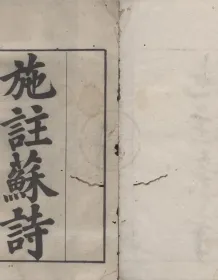 施註蘇詩